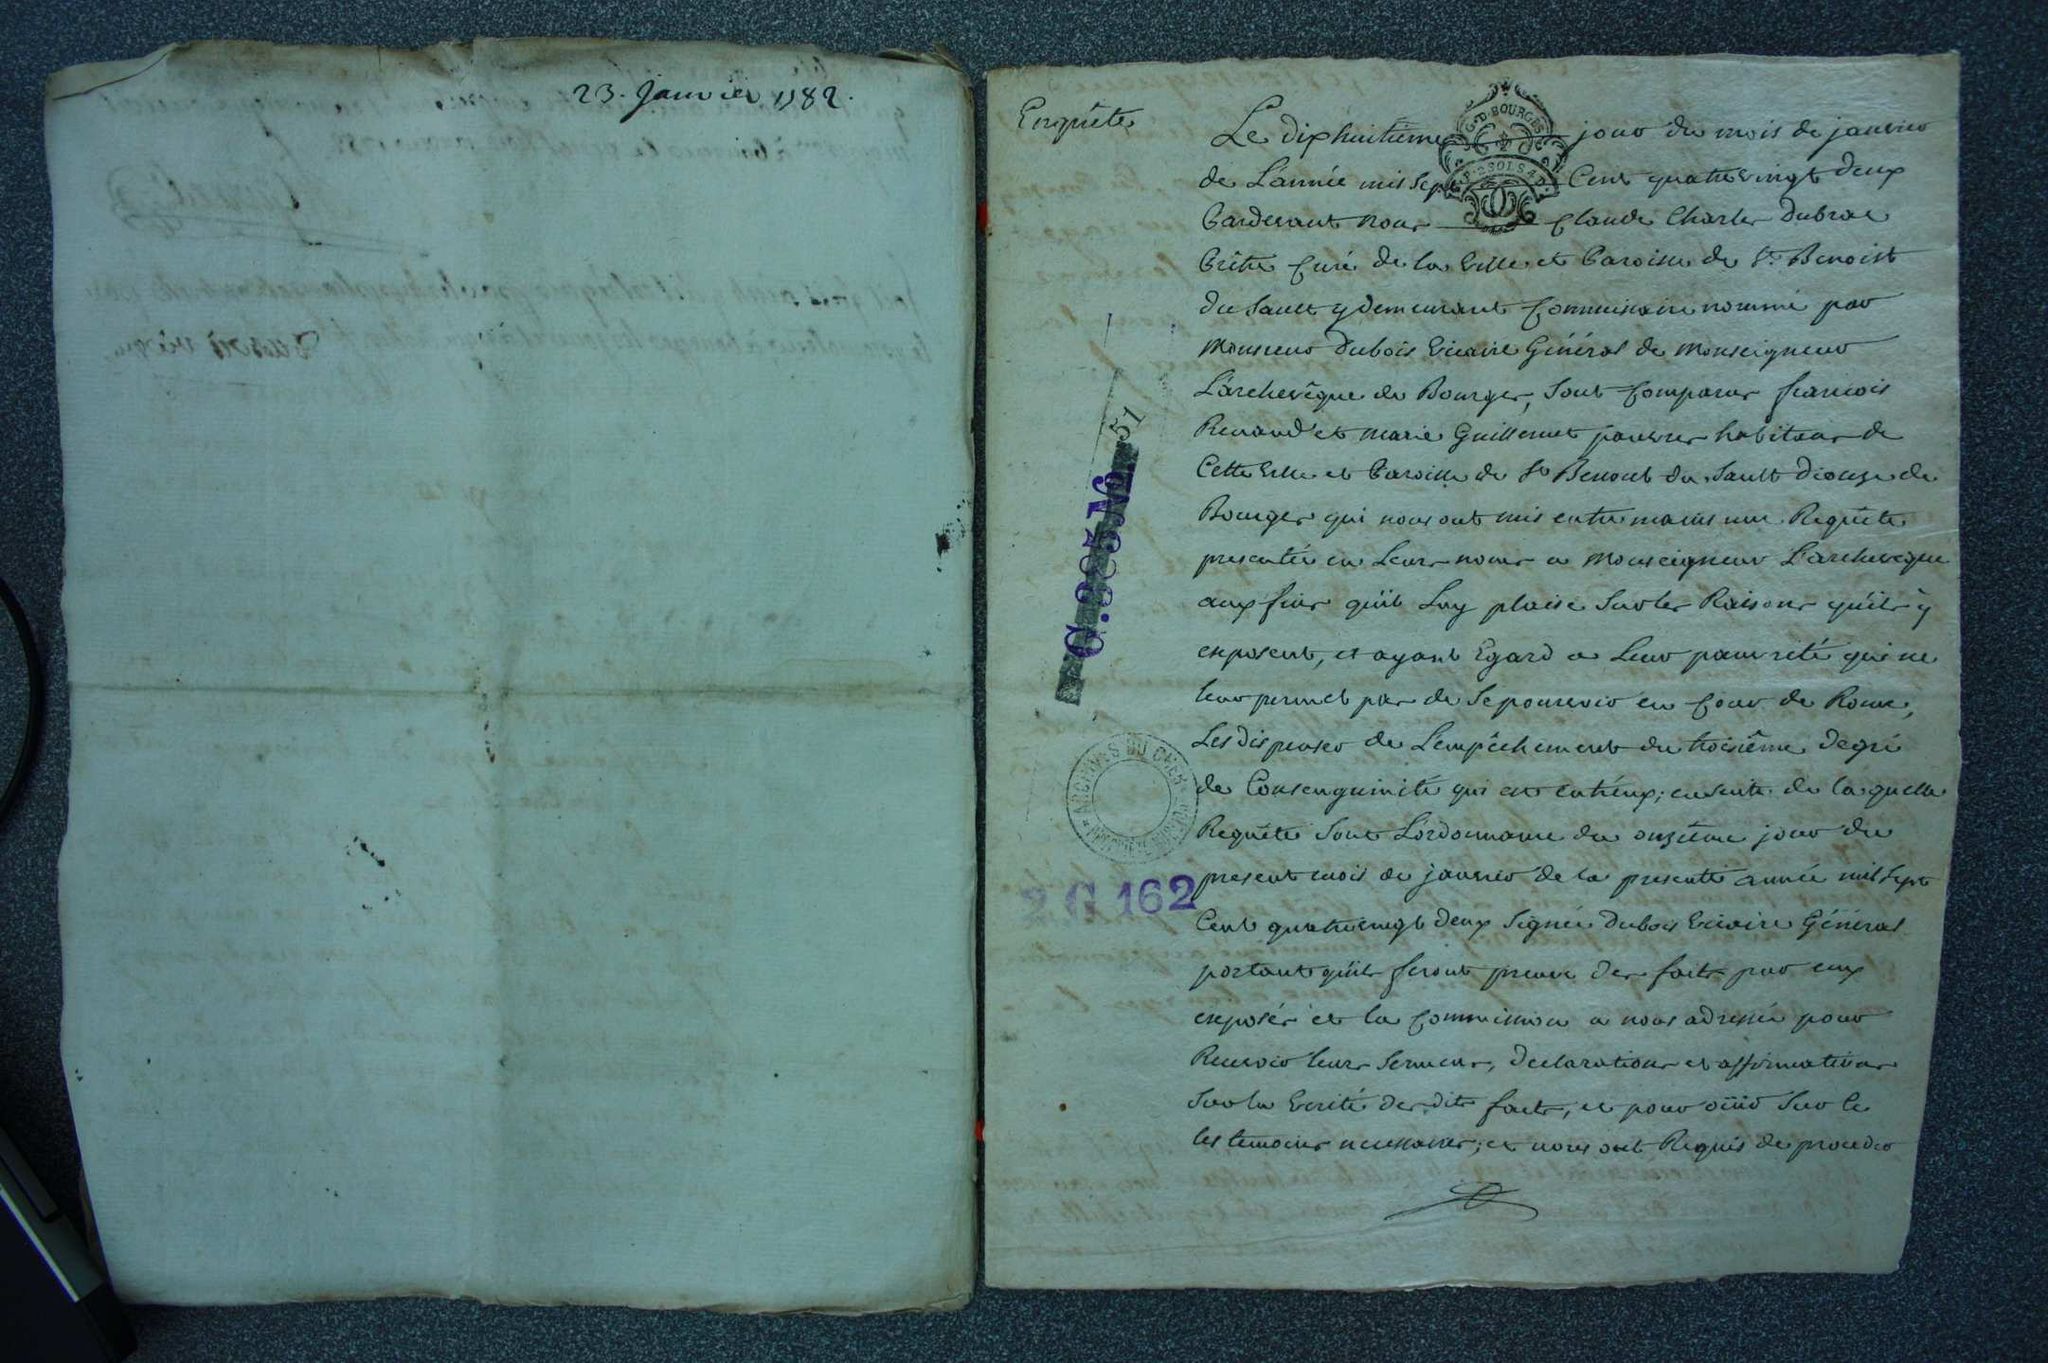 23. Janvier 1782.
Enquête
G.D. BOURGES
P. 2 SOLS 4 D.
Le dixhuitieme jour du mois de janvier
de L'année mil sept Cent quatrevingt deux
Pardevant nous Claude Charles Dubrac
Prêtre Curé de la Ville et Paroisse de St. Benoist
du Sault y demeurant Commissaire nommé par
Monsieur Dubois Vicaire Général de Monseigneur
L'archevêque de Bourges, sont comparus françois
Renaud et Marie Guillemet pauvres habitans de
Cette Ville et Paroisse de St Benoist du Sault diocese de
Bourges qui nous ont mis entre mains une Requête
presentée en Leurs noms a Monseigneur L'archeveque
aux fins qu'il Luy plaise Sur les Raisons qu'ils y
exposent, et ayant Egard a Leur pauvreté qui ne
leur permet pas de se pourvoir en Cour de Rome,
Les dispenser de L'empêchement du troisième degré
de Consenguinité qui est entr'eux; ensuite de la quelle
Requête sont L'ordonnance du onzième jour du
present mois de janvier de la presente année mil sept
Cent quatrevingt deux signée Dubois Vicaire Général
portant qu'ils feront preuve des faits par eux
exposés et la Commission a nous adressée pour
Recevoir leurs sermens, declarations et affirmations
Sur la Verité des dits faits, et pour oüir Sur le
les temoins necessaires; et nous ont Requis de proceder
51
G. 325 M
ARCHIVES DU CHER
2 G 162